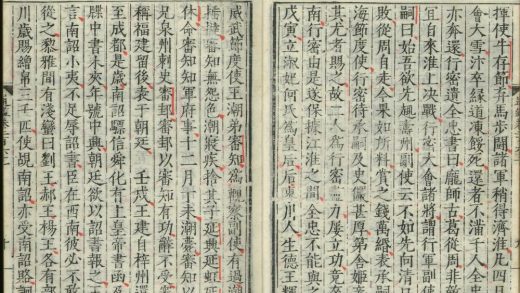 揮使牛存節弃馬步鬬諸軍稍得濟淮凡四日
會大雪汴卒緣道凍餒死還者不滿千人全忠
亦奔還行密遺全忠書曰龐師古葛從周非敵
宜自來淮上决戰行密大會諸將謂行軍副使
嗣曰始吾欲先趣壽州副使云不如先向清口
敗從周自走今果如所料賞之錢萬緡表承嗣
海節度使行密待承嗣及史儼甚厚第舍姬妾
其尤者賜之故二人爲行密盡力屢立功竟
南行密由是遂保據江淮之間全忠不能與之
戊寅立淑妃何氏爲皇后后東川人生德王輝
威武節度使王潮弟審知爲觀察副使有過潮
捶撻審知無怨色潮寢疾捨其子延興延虹延
休命審知知軍府事十二月丁未潮薨審知
兄泉州刺史審邽審邽以審知有功辭不受
稱福建留後表于朝廷 壬戌王建自梓州還
至成都是歲南詔驃信舜化有上皇帝書函及
牒中書木夾年號中興朝廷欲以詔書報之王
言南詔小夷不足辱詔書臣在西南彼必不
從之黎雅間有淺蠻曰劉王郝王楊王各有部
川歲賜繒帛三千匹使覘南詔亦受南詔賂詗